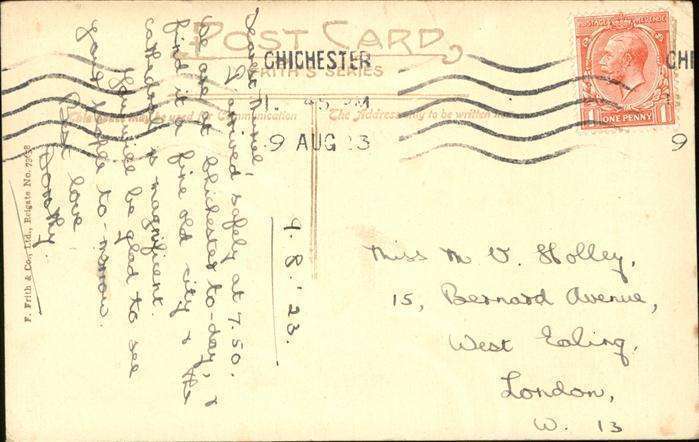 POST CARD
FRITH'S SERIES
CHICHESTER
45 PM
9 AUG 23
CHI
9
POSTAGE REVENUE
1 1
ONE PENNY
This space may be used for Communication
The Address only to be written
F. Frith & Co., Ltd., Reigate No.
Dearest
I arrived safely at 7.50.
We are at Chichester to-day, &
find it a fine old city & the
Cathedral is magnificent.
you will be glad to see
your to-morrow.
Best love
Dorothy.
9.8.'23.
Miss M V. Holley,
15, Bernard Avenue,
West Ealing,
London,
W. 13